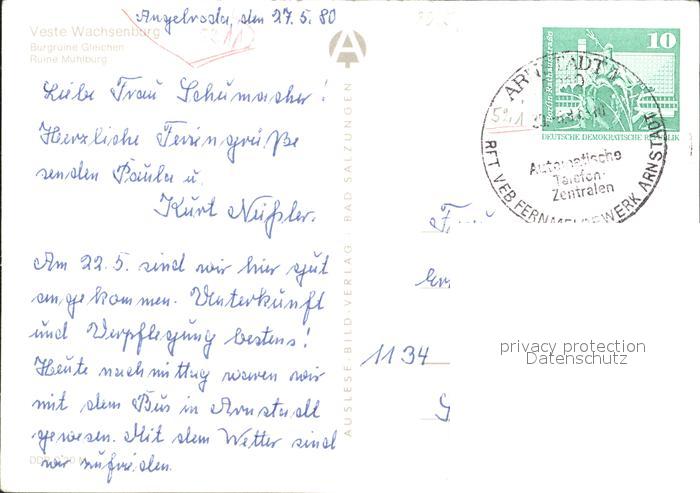 Angelroda, den 27.5.80
Veste Wachsenburg
Burgruine Gleichen
Ruine Mühlburg
Liebe Frau Schumacher!
Herzliche Feriengrüße
senden Paula u.
Kurt Nüßler.
Am 22.5. sind wir hier gut
angekommen. Unterkunft
und Verpflegung bestens!
Heute nachmittag waren wir
mit dem Bus in Arnstadt
gewesen. Mit dem Wetter sind
wir zufrieden.
AUSLESE-BILD-VERLAG BAD SALZUNGEN
10
Berlin Rathausstraße
DEUTSCHE DEMOKRATISCHE REPUBLIK
ARNSTADT 1
Automatische
Telefon-
Zentralen
RFT VEB FERNMELDEWERK ARNSTADT
Frau
1134
privacy protection
Datenschutz